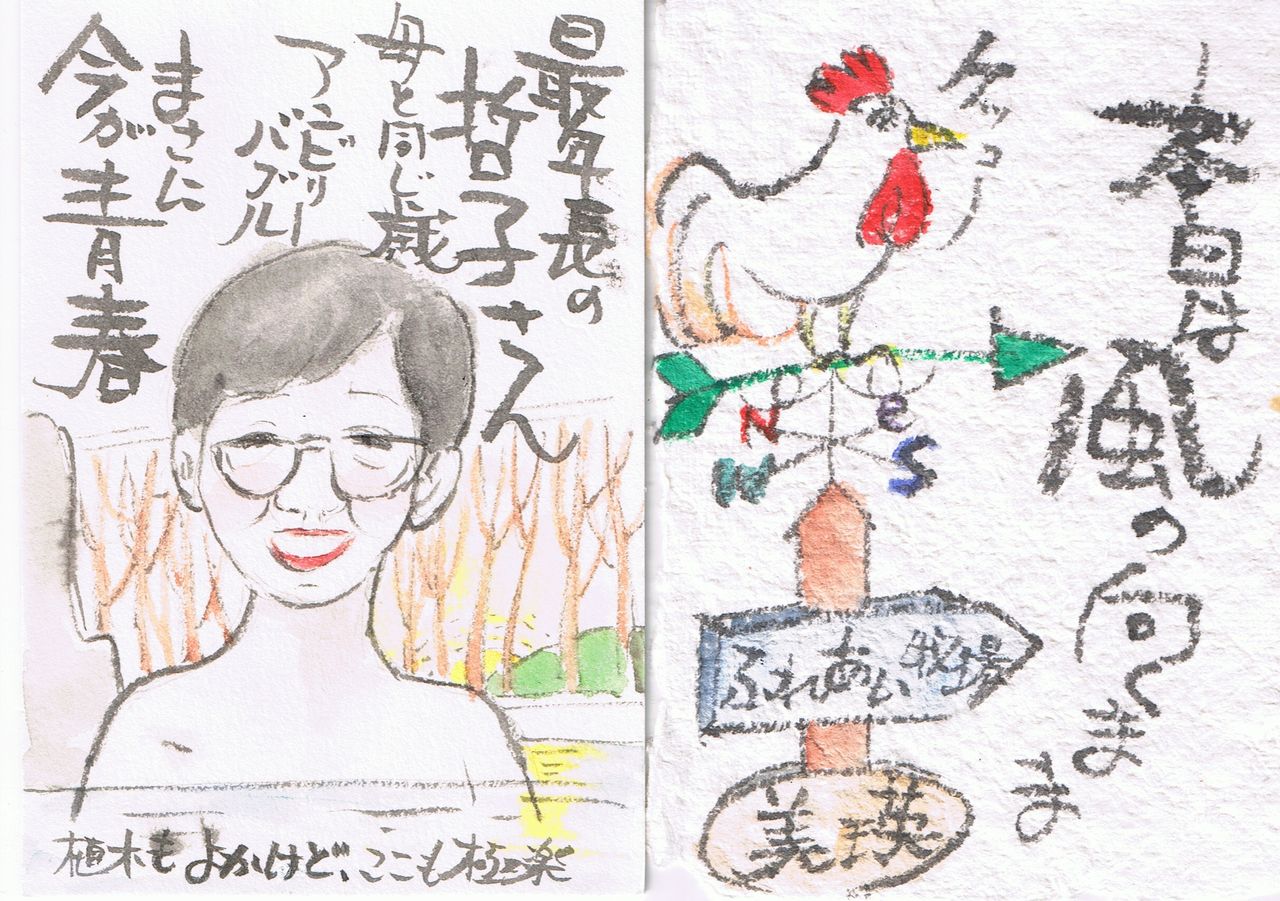 最年長の
哲子さん
母と同じ歳
アンビリー
バブル
まさに
今が青春
植木もよかけど、ここも極楽
本日は
風の向くまま
ケッコー
N
e
W
S
ふれあい牧場
美瑛